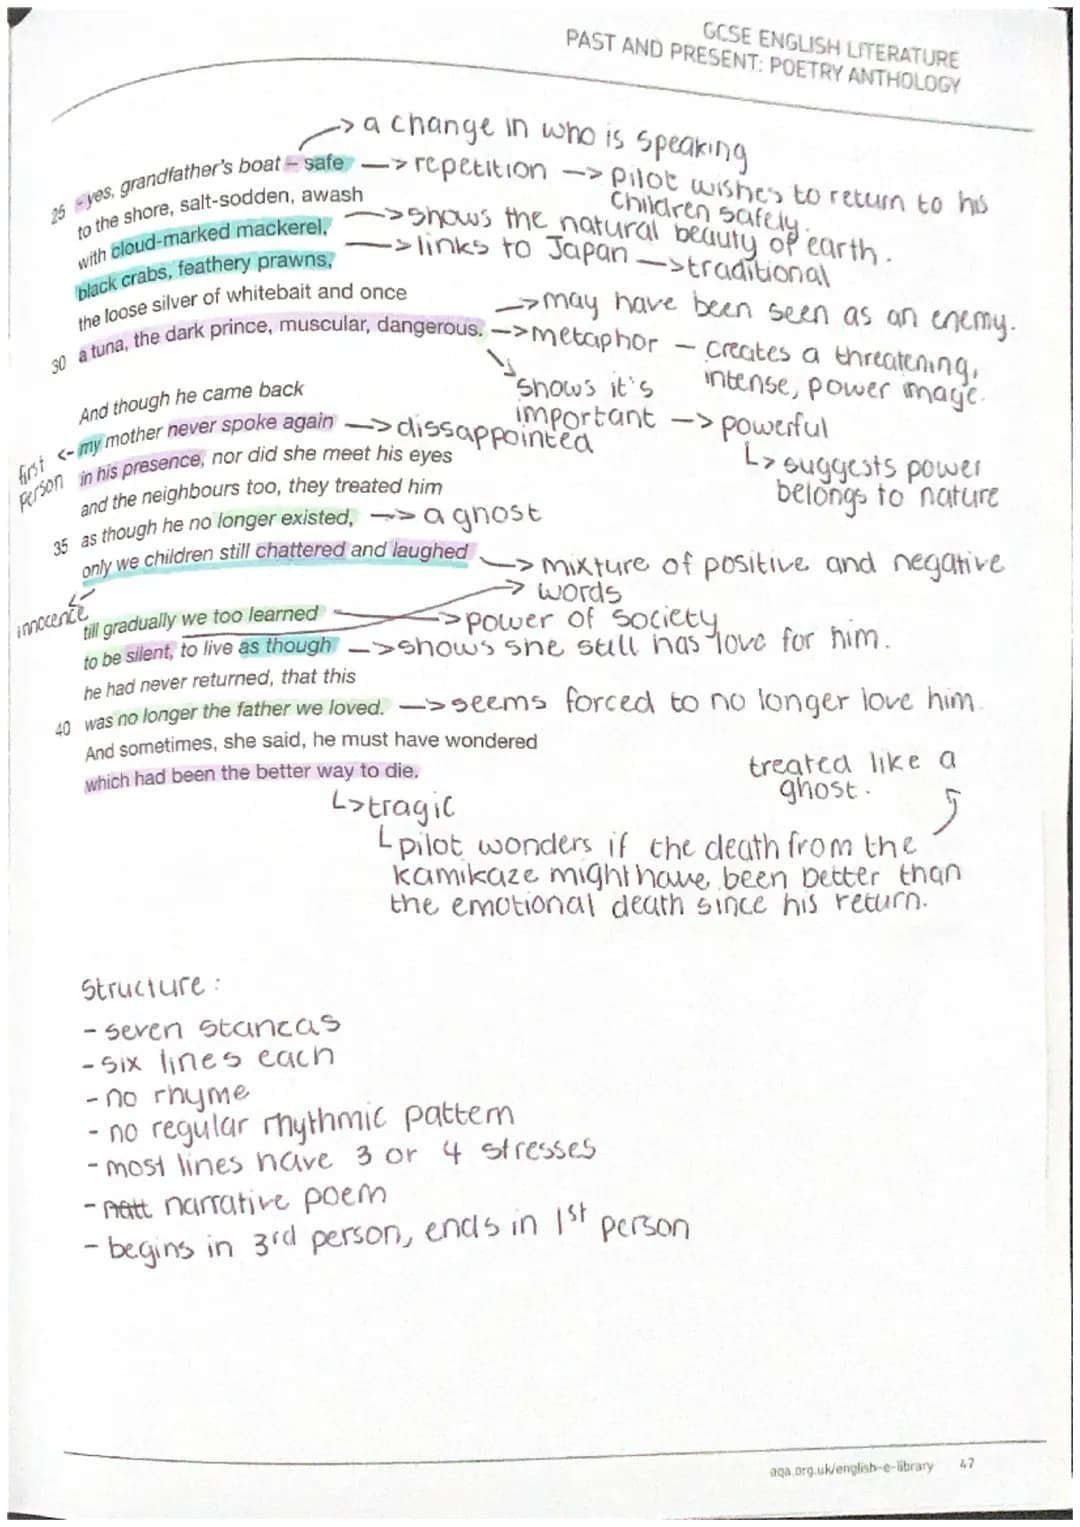 GCSE ENGLISH LITERATURE
PAST AND PRESENT: POETRY ANTHOLOGY
-> a change in who is speaking
25 - yes, grandfather's boat – safe -> repetition -> pilot wishes to return to his children safely.
to the shore, salt-sodden, awash
with cloud-marked mackerel, -> shows the natural beauty of earth.
black crabs, feathery prawns, -> links to Japan -> traditional
the loose silver of whitebait and once
-> may have been seen as an enemy.
30 a tuna, the dark prince, muscular, dangerous. -> metaphor - creates a threatening, intense, power image.
shows it's important -> powerful
↳ suggests power belongs to nature
And though he came back
first person <- my mother never spoke again -> dissappointed
in his presence, nor did she meet his eyes
and the neighbours too, they treated him
35 as though he no longer existed, -> a ghost
only we children still chattered and laughed -> mixture of positive and negative
-> words
innocence
till gradually we too learned -> power of society
to be silent, to live as though -> shows she still has love for him.
he had never returned, that this
40 was no longer the father we loved. -> seems forced to no longer love him.
And sometimes, she said, he must have wondered
which had been the better way to die.
treated like a ghost.
↳ tragic
↳ pilot wonders if the death from the
kamikaze might have been better than
the emotional death since his return.
Structure:
- seven stanzas
- six lines each
- no rhyme
- no regular rhythmic pattern
- most lines have 3 or 4 stresses
- narrative poem
- begins in 3rd person, ends in 1st person
aqa.org.uk/english-e-library 47